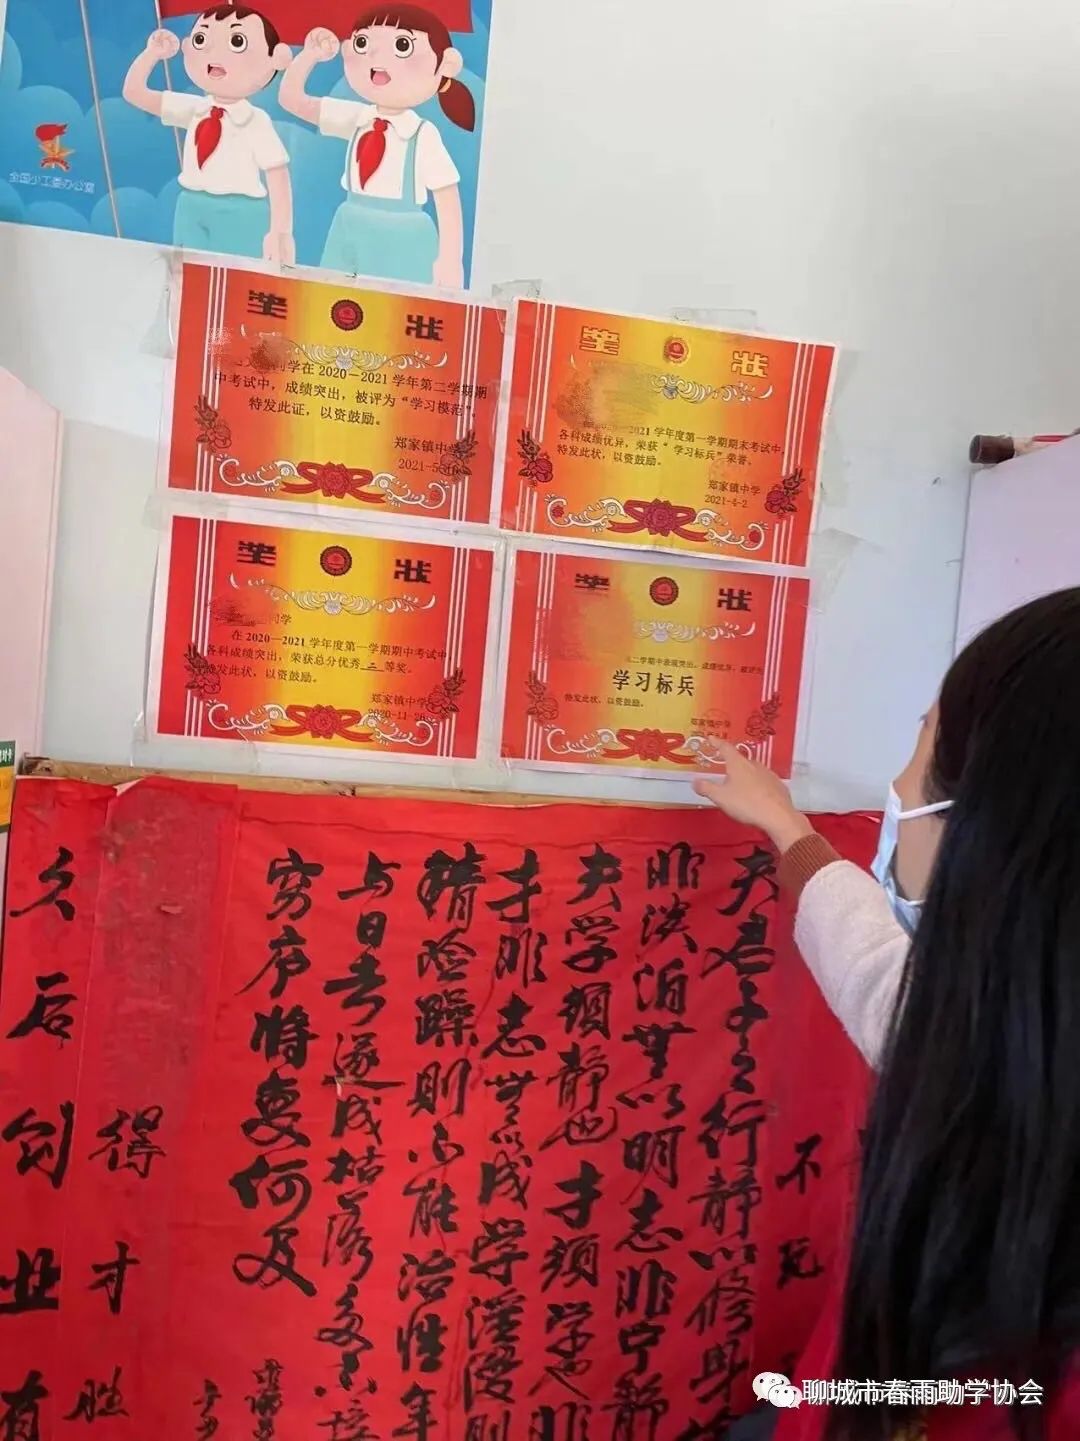 全国少工委办公室
奖 状
同学在2020—2021学年第二学期期
中考试中，成绩突出，被评为“学习模范”，
特发此证，以资鼓励。
郑家镇中学
奖 状
2021学年度第一学期期末考试中，
各科成绩优异，荣获“学习标兵”荣誉。
特发此状，以资鼓励。
郑家镇中学
2021-4-2
奖 状
同学
在2020—2021学年度第一学期期中考试中，
各科成绩突出，荣获总分优秀二等奖。
特发此状，以资鼓励。
郑家镇中学
2020-11-26
奖 状
二学期中表现突出，成绩优异，被评为
学习标兵
特发此状，以资鼓励。
郑家镇中学
不玩
夫君子之行静以修身
非淡泊无以明志非宁静
夫学须静也才须学也非
才非志无以成学淫慢则
精险躁则不能治性年
与日去遂成枯落多不接
穷庐将复何及
得才胜
久后创业有
聊城市春雨助学协会